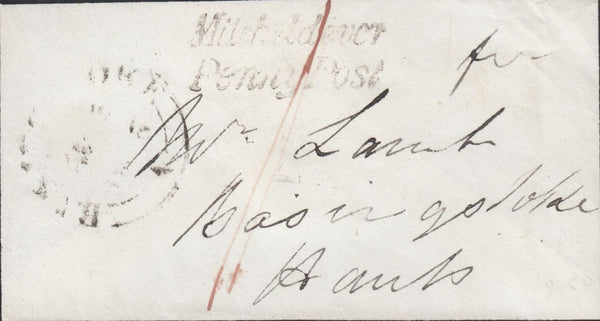 Micheldever
Penny Post
Mr Lamb
Basingstoke
Hants